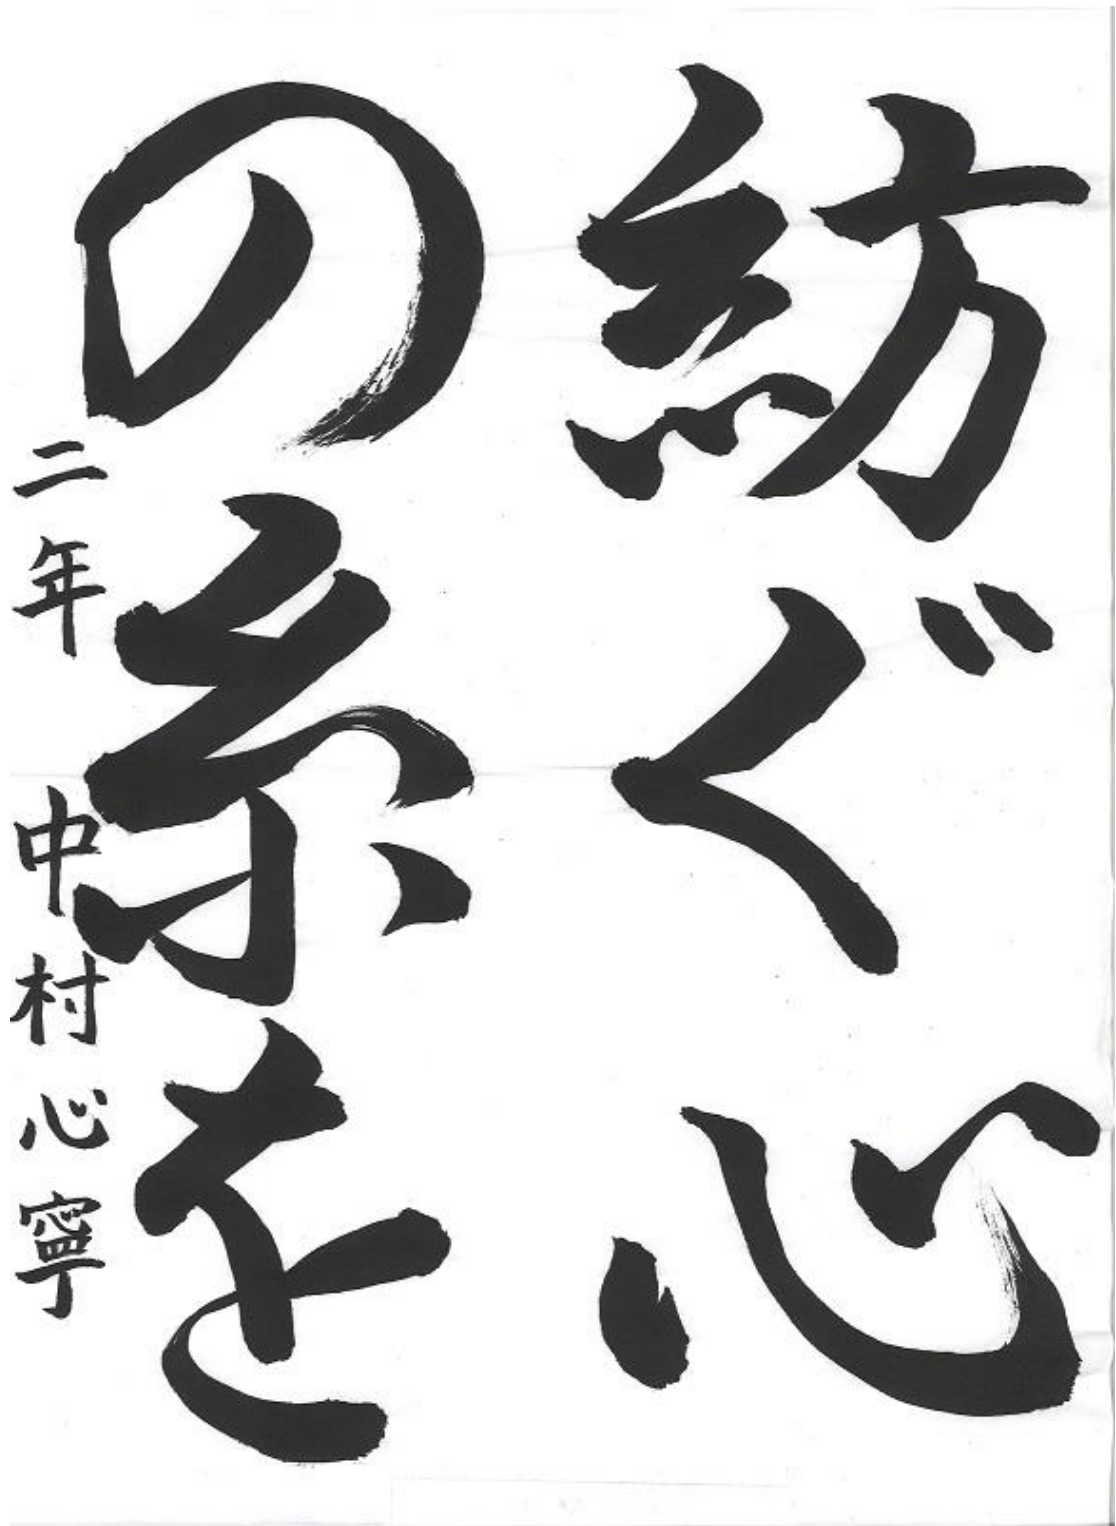 紡ぐ心
の糸を
二年 中村心寧